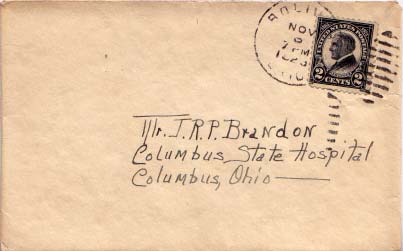 BOLIV
NOV
6
7 PM
1923
OHIO
UNITED STATES POSTAGE
2 CENTS 2
Mr. J.R.P. Brandon
Columbus State Hospital
Columbus, Ohio